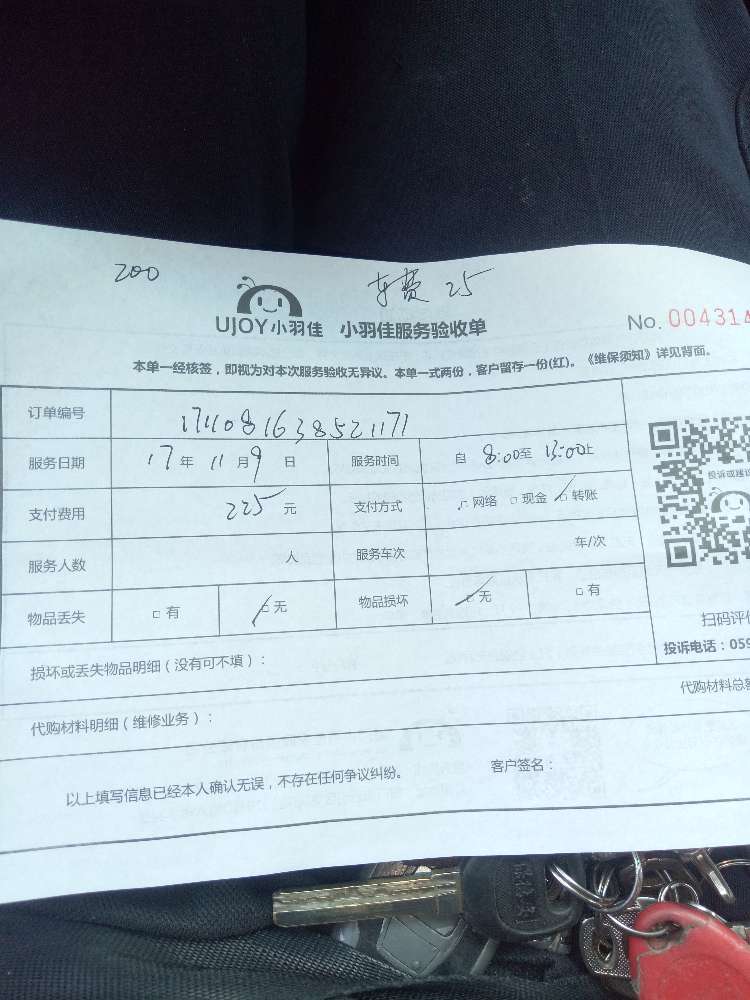 200 车费 25
UJOY小羽佳 小羽佳服务验收单 No. 004314
本单一经核签，即视为对本次服务验收无异议。本单一式两份，客户留存一份(红)。《维保须知》详见背面。
订单编号 1711081638521171
服务日期 17年 11月9日 服务时间 自 8:00至 13:00止
支付费用 225元 支付方式 □网络 □现金 □转账
服务人数 人 服务车次 车/次
物品丢失 □有 □无 物品损坏 □无 □有
投诉或建议
扫码评价
投诉电话：059
损坏或丢失物品明细（没有可不填）：
代购材料明细（维修业务）： 代购材料总
以上填写信息已经本人确认无误，不存在任何争议纠纷。 客户签名：